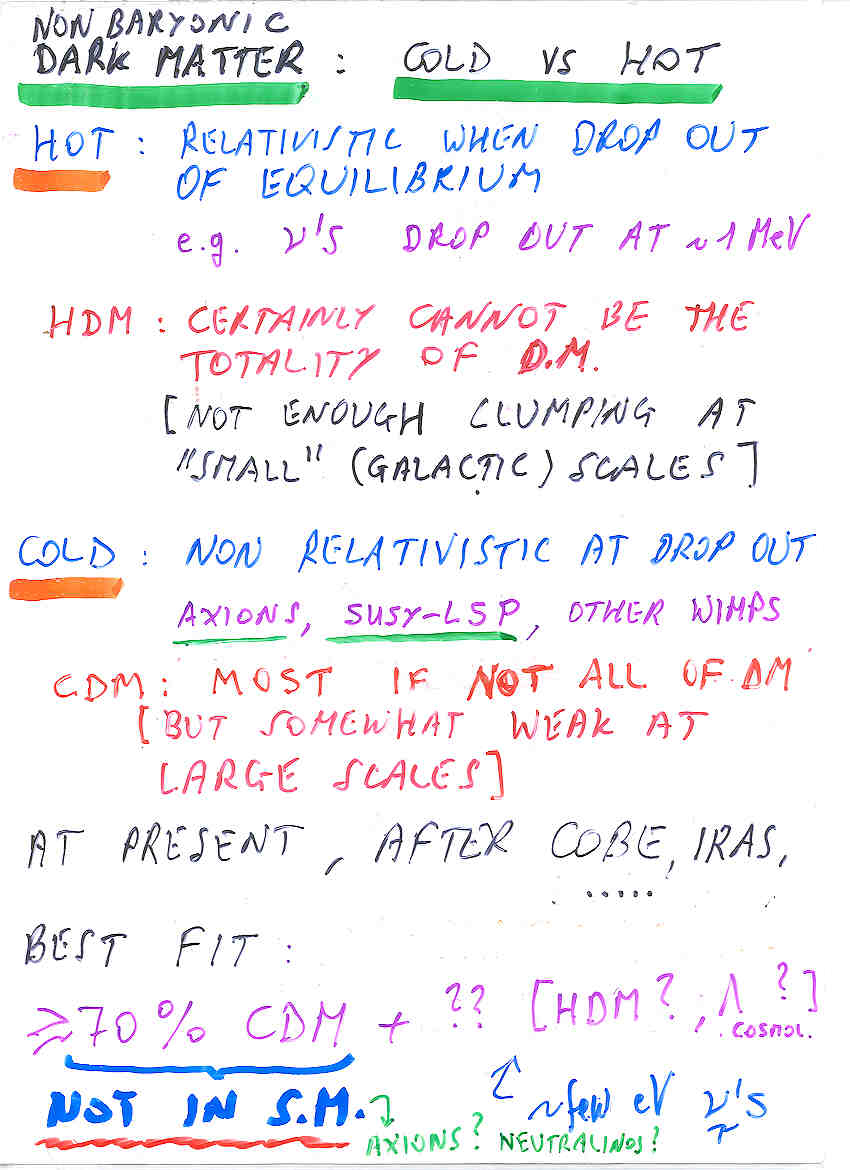 NON BARYONIC
DARK MATTER : COLD VS HOT
HOT : RELATIVISTIC WHEN DROP OUT
OF EQUILIBRIUM
e.g. ν's DROP OUT AT ~1 MeV
HDM : CERTAINLY CANNOT BE THE
TOTALITY OF D.M.
[NOT ENOUGH CLUMPING AT
"SMALL" (GALACTIC) SCALES]
COLD : NON RELATIVISTIC AT DROP OUT
AXIONS, SUSY-LSP, OTHER WIMPS
CDM : MOST IF NOT ALL OF DM
[BUT SOMEWHAT WEAK AT
LARGE SCALES]
AT PRESENT, AFTER COBE, IRAS,
.....
BEST FIT :
≳70% CDM + ?? [HDM?, Λ?]
COSMOL.
NOT IN S.M. ~few eV ν's
AXIONS? NEUTRALINOS?